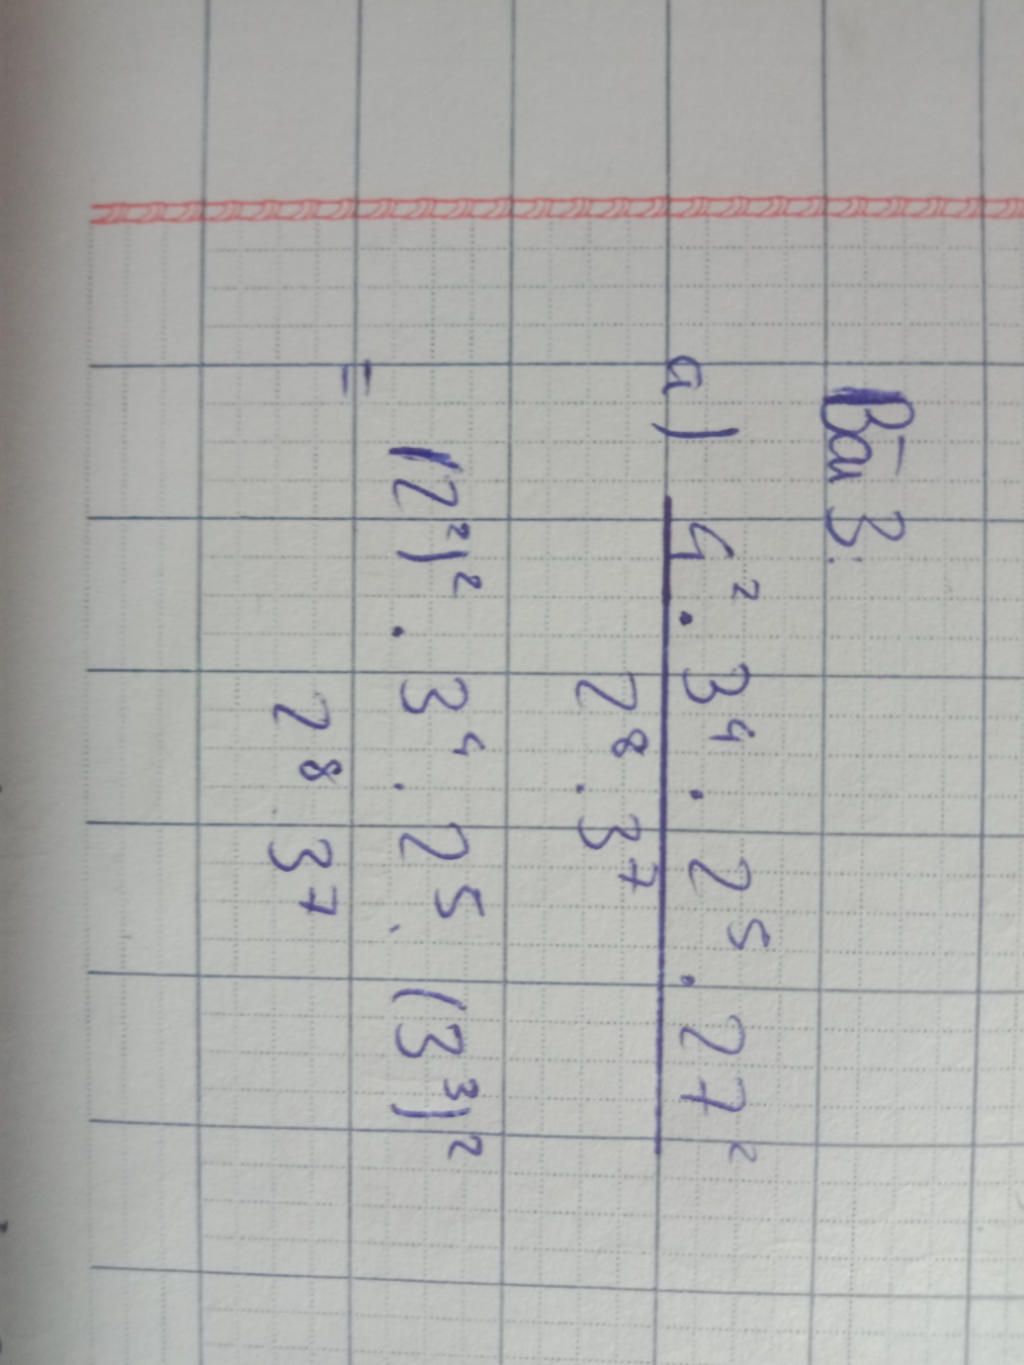 Bài 3:
a) 4² . 3⁴ . 2⁵ . 27²
2⁸ . 3⁷
= (2²)² . 3⁴ . 2⁵ . (3³)²
2⁸ . 3⁷